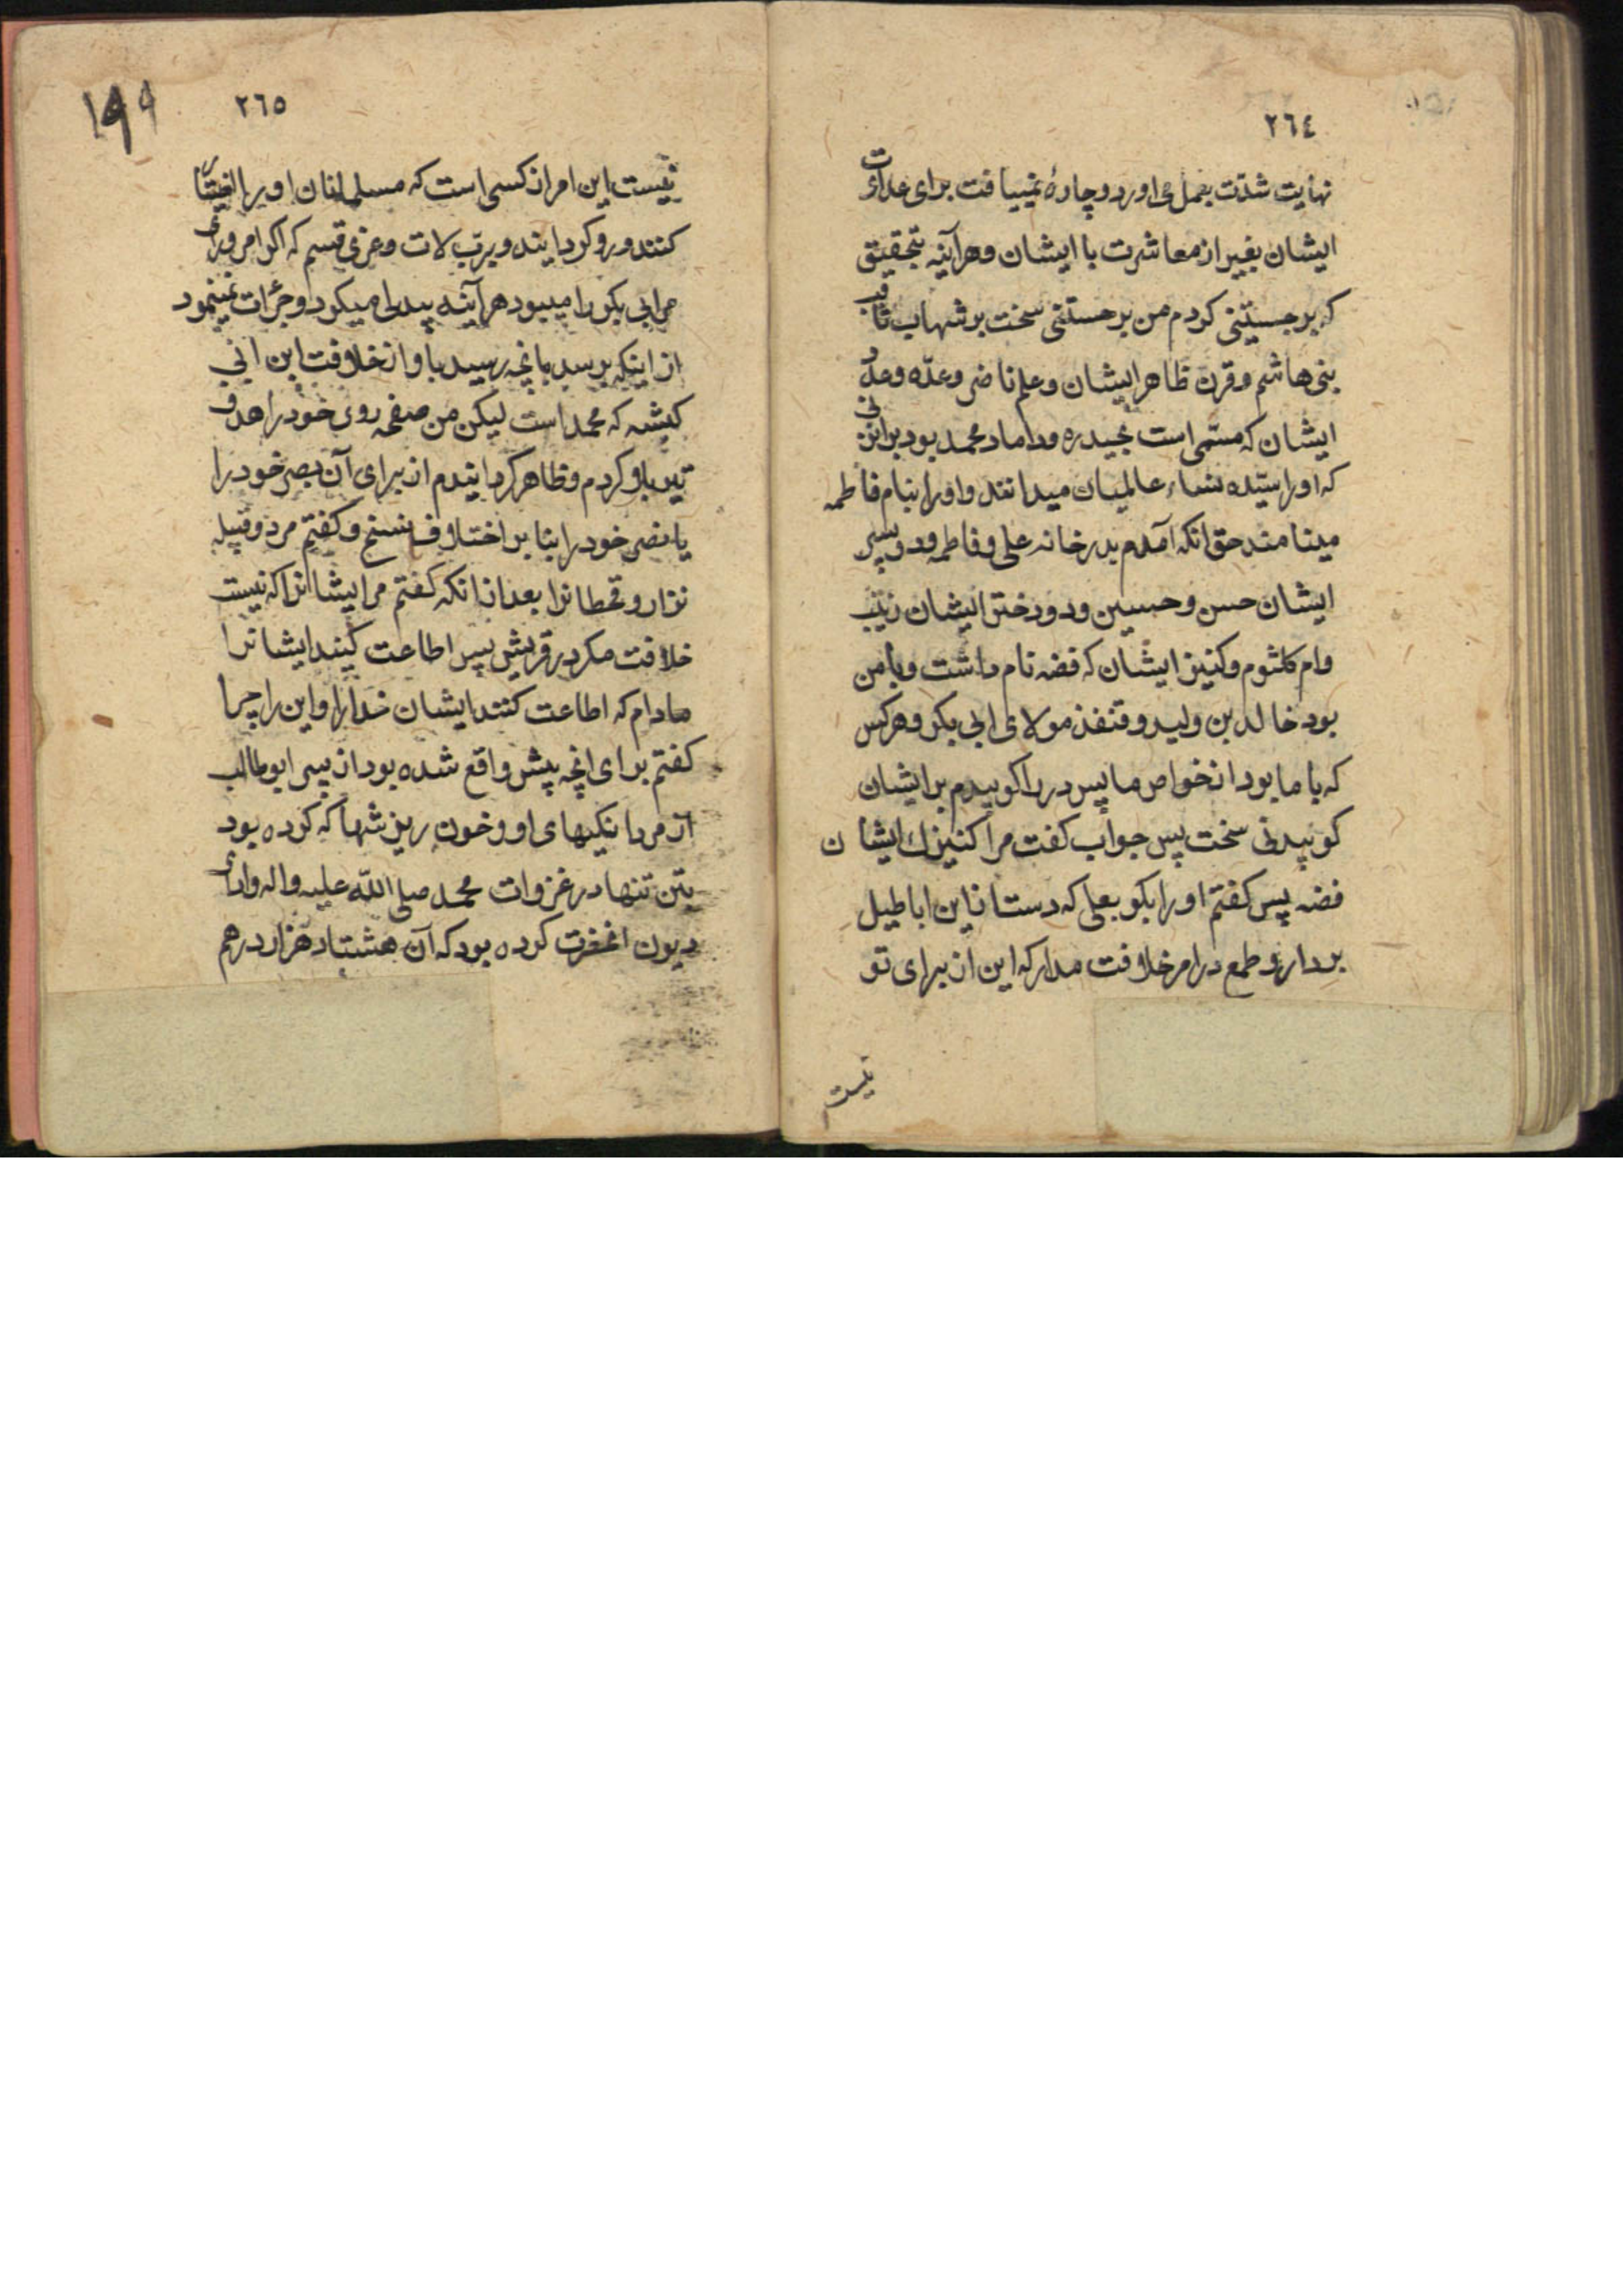 ٢٦٤
نهایت شدّت بعمل می اورد و چارهٔ نمییافت برای عداوت
ایشان بغیر از معاشرت با ایشان و هرآینه بتحقیق
که برجستنی کردم من برجستنی سخت بر شهاب ثاقب
بنی هاشم و قرن ظاهر ایشان و علم ناضر و عدّه و عدد
ایشان که مسمّی است بحیدره و داماد محمد بود بر آنزنی
که او را سیّده نساء عالمیان میدانند و او را بنام فاطمه
مینامند حق انکه آمدم بدر خانه علی و فاطمه و دو پسر
ایشان حسن و حسین و دو دختر ایشان زینب
و ام کلثوم و کنیز ایشان که فضه نام داشت و با من
بود خالد بن ولید و قنفذ مولای ابی بکر و هر کس
که با ما بود از خواص ما پس در را کوبیدم بر ایشان
کوبیدنی سخت پس جواب کفت مرا کنیزک ایشان
فضه پس کفتم او را بکو بعلی که دست از این اباطیل
بردار و طمع در امر خلافت مدار که این از برای تو
نیست
٢٦٥
١٩٩
نیست این امر از کسی است که مسلمانان او را اختیار
کنند و رو کردانند و برب لات و عزی قسم که اکر امر و رای
مر ابی بکر را میبود هرآینه پیدا میکرد و جرات نمینمود
از اینکه برسد بانچه رسید باو از خلافت ابن ابی
کبشه که محمد است لیکن من صفحه روی خود را هدف
تیر باو کردم و ظاهر کردانیدم از برای آن بصر خود را
یا نصر خود را بنا بر اختلاف نسخ و کفتم مر دو قبیله
نزار و قحطانرا بعد از انکه کفتم مر ایشانرا که نیست
خلافت مکر در قریش پس اطاعت کنید ایشانرا
مادام که اطاعت کنند ایشان خدا را و این را چرا
کفتم برای انچه پیش واقع شده بود از پسر ابوطالب
از مردانکیهای او و خون ریزشها که کرده بود
بتن تنها در غزوات محمد صلی الله علیه و اله و ادای
دیون انحضرت کرده بود که آن هشتاد هزار درهم